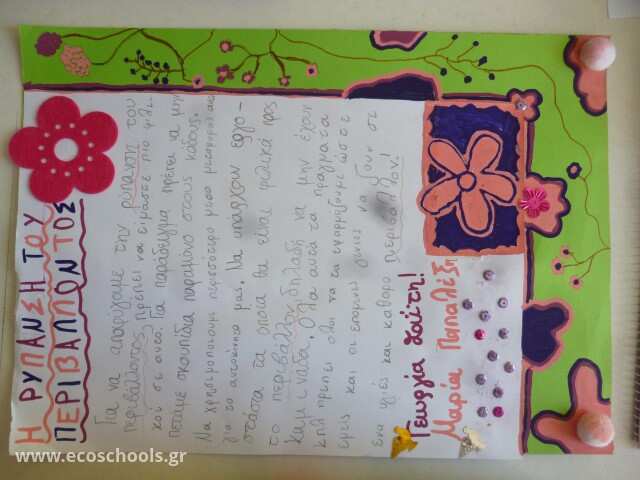 Η ΡΥΠΑΝΣΗ ΤΟΥ
ΠΕΡΙΒΑΛΛΟΝΤΟΣ
Για να αποφύγουμε την ρύπανση του
περιβάλλοντος πρέπει να είμαστε πιο φιλι-
κοί σε αυτό. Για παράδειγμα πρέπει να μην
πετάμε σκουπίδια παραμόνο στους κάδους.
Να χρησιμοποιούμε περισσότερο μέσα μεταφοράς
για τα αυτοκίνητα μας. Να υπάρχουν εργο-
στάσια τα οποία θα είναι φιλικά προς
το περιβάλλον δηλαδή να μην έχουν
καμινάδα. Όλα αυτά τα πράγματα
κλπ πρέπει όλοι να τα εφαρμόζουμε ώστε
εμείς και οι επόμενες γενιές να ζουν σε
ένα υγιές και καθαρό περιβάλλον!
Γεωργία
Μαρία Παπαλέξη
www.ecoschools.gr